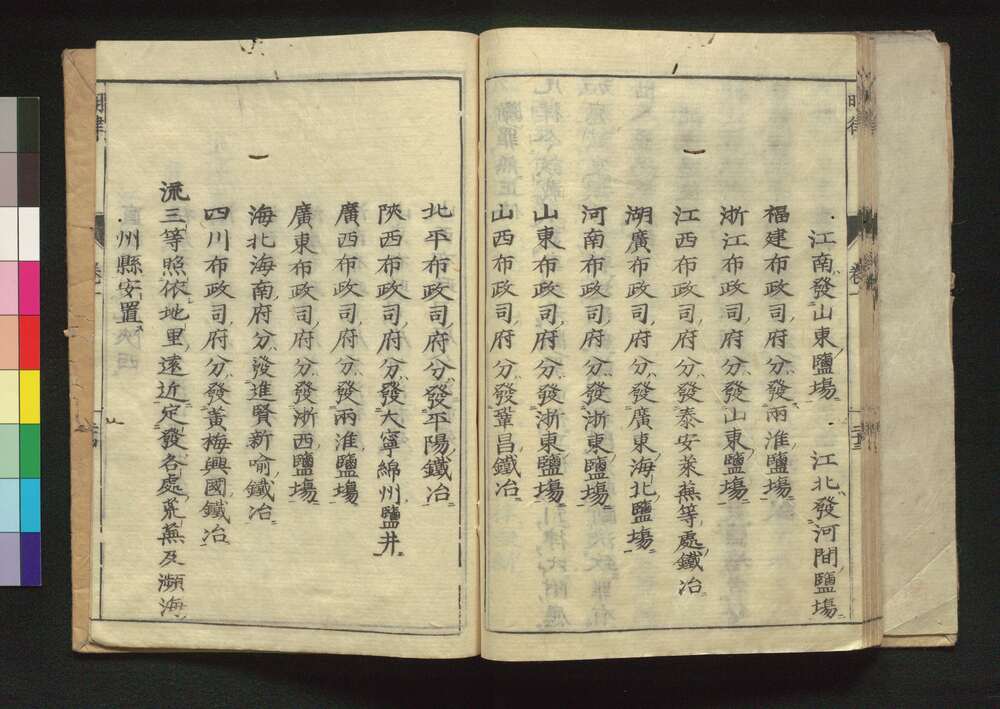 江南發山東鹽場 江北發河間鹽場
福建布政司府分發兩淮鹽場
浙江布政司府分發山東鹽場
江西布政司府分發泰安萊蕪等處鐵冶
湖廣布政司府分發廣東海北鹽場
河南布政司府分發浙東鹽場
山東布政司府分發浙東鹽場
山西布政司府分發鞏昌鐵冶
北平布政司府分發平陽鐵冶
陝西布政司府分發大寧綿州鹽井
廣西布政司府分發兩淮鹽場
廣東布政司府分發浙西鹽場
海北海南府分發進賢新喻鐵冶
四川布政司府分發黃梅興國鐵冶
流三等照依地里遠近定發各處荒蕪及瀕海
州縣安置